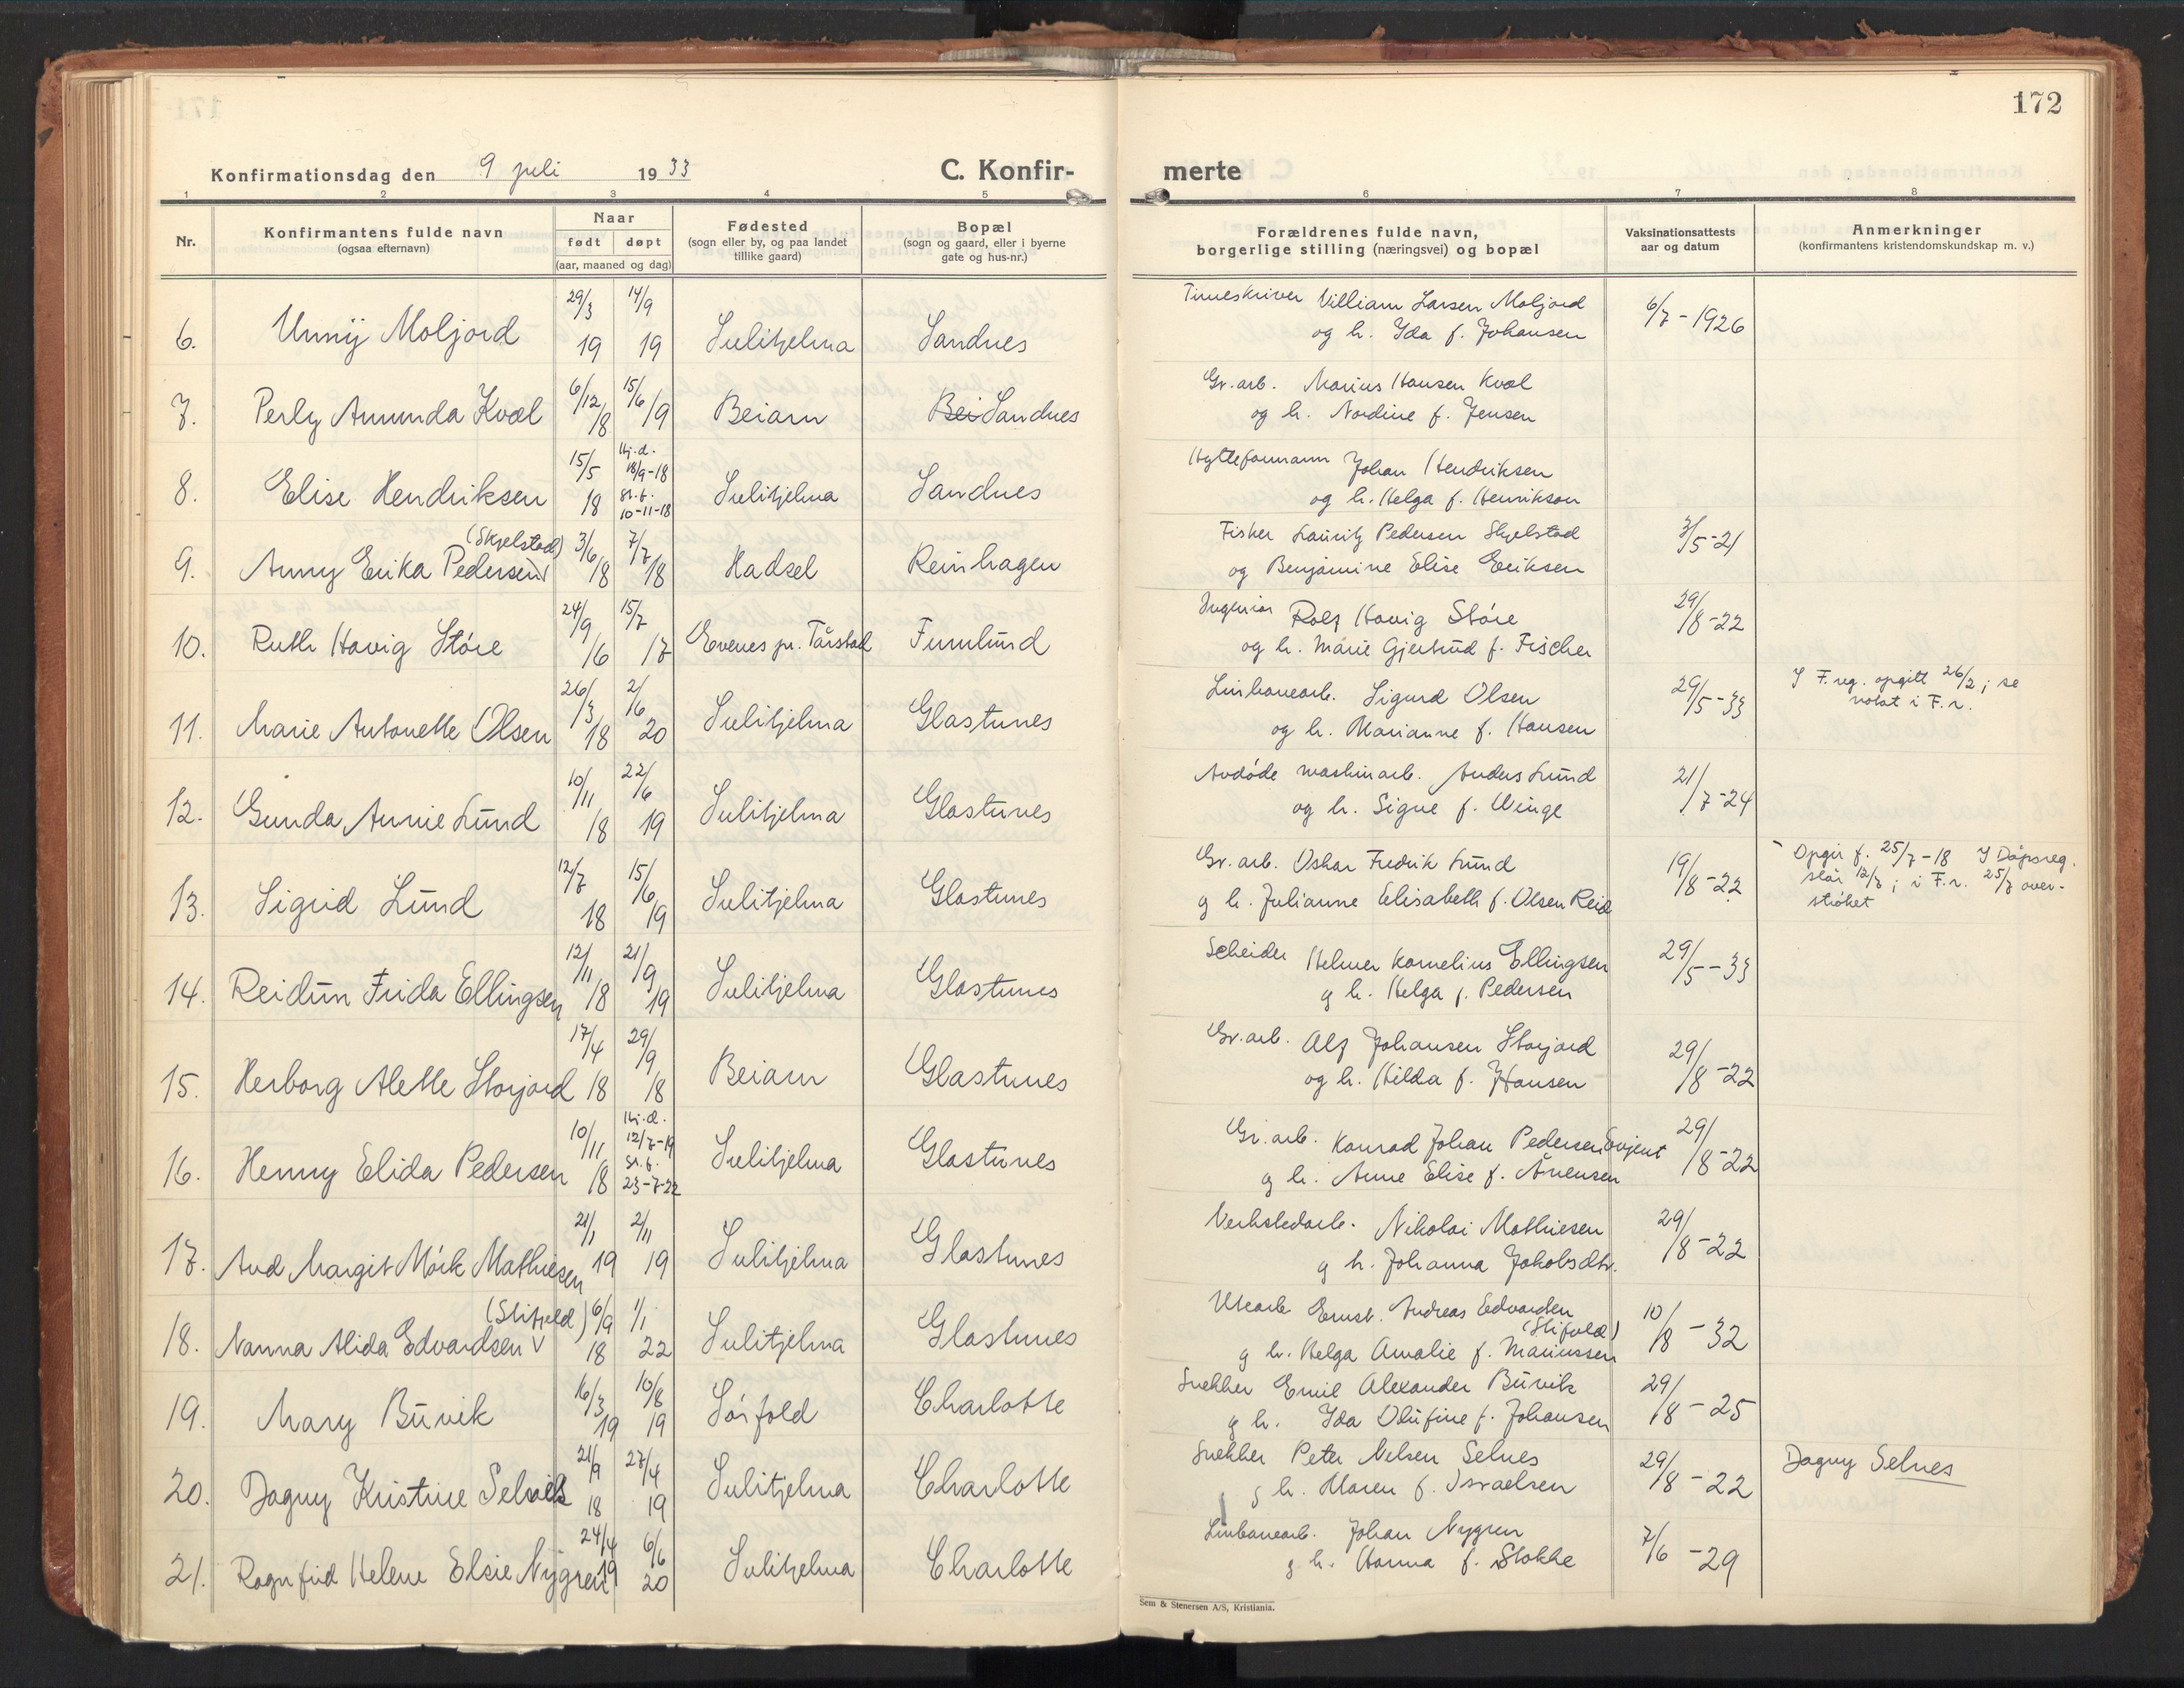 172
Konfirmationsdag den 9 juli 1933 C. Konfir- merte
1 2 3 4 5 6 7 8
Nr. Konfirmantens fulde navn (ogsaa efternavn) Naar født døpt (aar, maaned og dag) Fødested (sogn eller by, og paa landet tillike gaard) Bopæl (sogn og gaard, eller i byerne gate og hus-nr.) Forældrenes fulde navn, borgerlige stilling (næringsvei) og bopæl Vaksinationsattests aar og datum Anmerkninger (konfirmantens kristendomskundskap m. v.)
6. Unny Moljord 29/3 19 14/9 19 Sulitjelma Sandnes Timeskriver Villiam Larsen Moljord 6/7-1926
og h. Ida f. Johansen
7. Perly Amunda Kvæl 6/12 18 15/6 19 Beiarn Bei Sandnes Gr.arb. Marius Hansen Kvæl
og h. Nordine f. Jensen
8. Elise Hendriksen 15/5 18 Hj.d. 18/9-18 st.f. 10-11-18 Sulitjelma Sandnes Hytteformann Johan Hendriksen
og h. Helga f. Henrikson
9. Anny Erika Pedersen (Skjelstad) 3/6 18 7/7 18 Hadsel Reinhagen Fisker Lauritz Pedersen Skjelstad 3/5-21
og Benjamine Elise Eriksen
10. Ruth Hovig Støre 24/9 16 15/7 17 Evenes pr. Tårstad Furulund Ingeniør Rolf Hovig Støre 29/8-22
og h. Marie Gjertrud f. Fischer
11. Marie Antonette Olsen 26/3 18 2/6 20 Sulitjelma Glastunes Linbanearb. Sigurd Olsen 29/5-33 I F.reg. opgitt 26/2; se
og h. Marianne f. Hansen notat i F.r.
12. Gunda Annie Lund 10/11 18 22/6 19 Sulitjelma Glastunes Avdøde maskinarb. Anders Lund 21/7-24
og h. Signe f. Winge
13. Sigrid Lund 12/7 18 15/6 19 Sulitjelma Glastunes Gr.arb. Oskar Fredrik Lund 19/8-22 Opgir f. 25/7-18 I Dåpsreg.
g h. Julianne Elisabeth f. Olsen Reid står 12/7; i F.r. 25/7 over-
strøket
14. Reidun Frida Ellingsen 12/11 18 21/9 19 Sulitjelma Glastunes Scheider Helmer Kornelius Ellingsen 29/5-33
g h. Helga f. Pedersen
15. Herborg Alette Storjord 17/4 18 29/9 18 Beiarn Glastunes Gr.arb. Alf Johansen Storjord 29/8-22
og h. Hilda f. Hansen
16. Henny Elida Pedersen 10/11 18 Hj.d. 12/7-19 st.f. 23-7-22 Sulitjelma Glastunes Gr.arb. Konrad Johan Pedersen Evjent 29/8-22
g h. Anne Elise f. Ånensen
17. Aud Margit Mörk Mathiesen 21/1 19 2/11 19 Sulitjelma Glastunes Verkstedarb. Nikolai Mathiesen 29/8-22
g h. Johanna Jakobsdtr.
18. Nanna Alida Edvardsen (Slifjeld) 6/9 18 1/1 22 Sulitjelma Glastunes Utearb Ernst Andreas Edvardsen 10/8-32
g h. Helga Amalie f. Mariussen
19. Mary Buvik 16/3 19 10/8 19 Sørfold Charlotte Snekker Emil Alexander Buvik 29/8-25
g h. Ida Olufine f. Johansen
20. Dagny Kristine Selnes 21/9 18 27/4 19 Sulitjelma Charlotte Snekker Peter Nelsen Selnes 29/8-22 Dagny Selnes
g h. Maren f. Israelsen
21. Ragnfrid Helene Elsie Nygren 24/4 19 6/6 20 Sulitjelma Charlotte Linbanearb. Johan Nygren 7/6-29
g h. Hanna f. Stokke
Sem & Stenersen A/S, Kristiania.